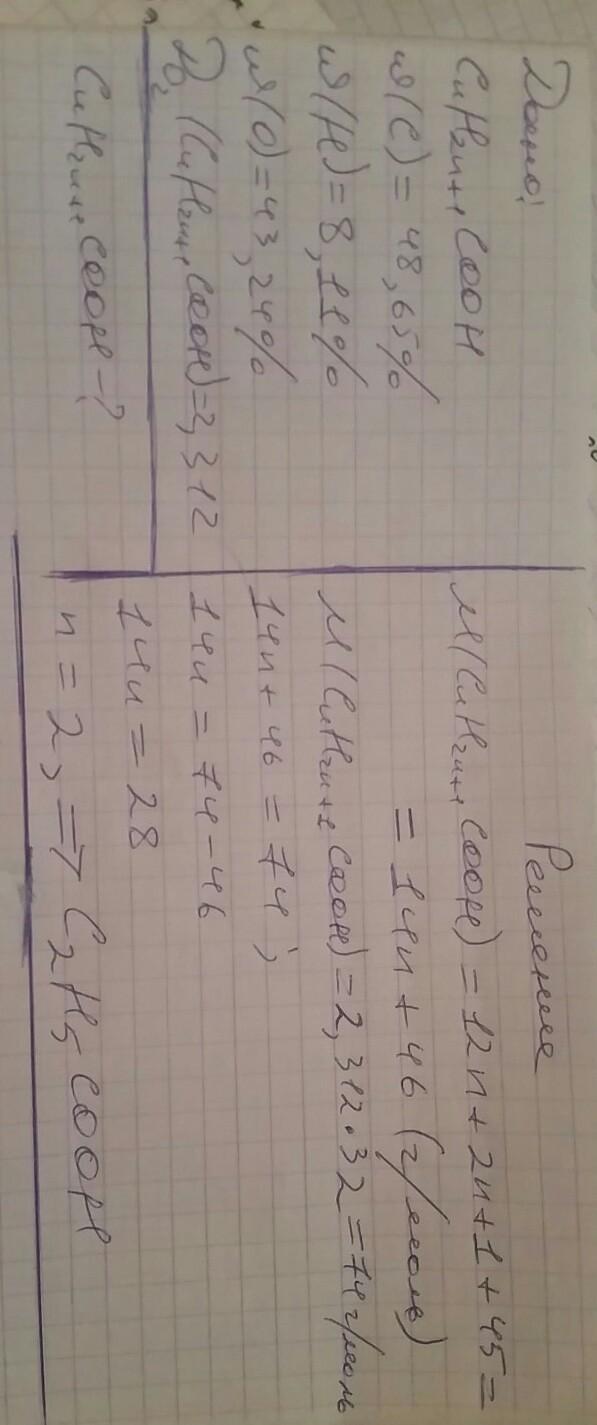 Дано:
CnH2n+1COOH
w(C) = 48,65%
w(H) = 8,11%
w(O) = 43,24%
DO2 (CnH2n+1COOH) = 2,312
CnH2n+1COOH - ?
Решение
M(CnH2n+1COOH) = 12n + 2n + 1 + 45 =
= 14n + 46 (г/моль)
M(CnH2n+1COOH) = 2,312 · 32 = 74 г/моль
14n + 46 = 74;
14n = 74 - 46
14n = 28
n = 2, => C2H5COOH